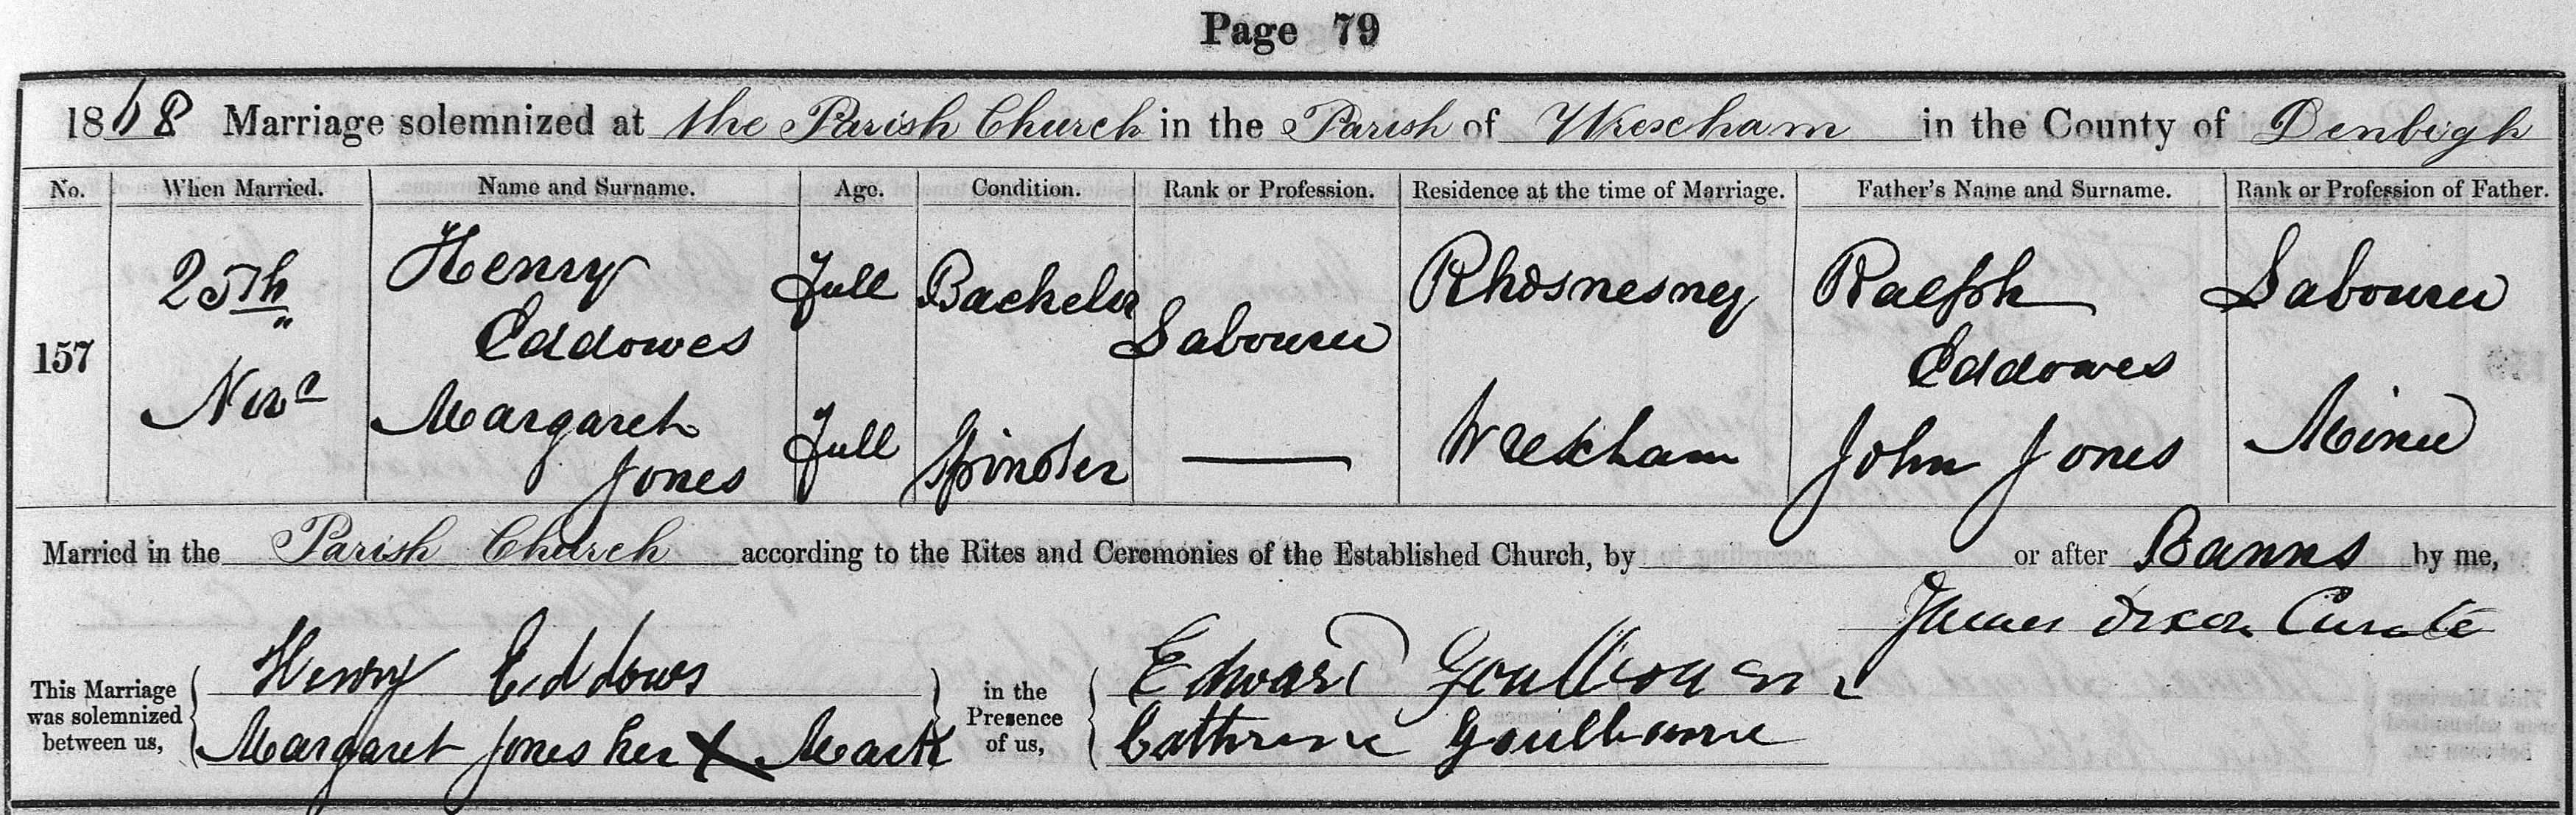 Page 79
1868 Marriage solemnized at the Parish Church in the Parish of Wrexham in the County of Denbigh
No. When Married. Name and Surname. Age. Condition. Rank or Profession. Residence at the time of Marriage. Father's Name and Surname. Rank or Profession of Father.
157
25th
Novr
Henry
Eddowes
Full
Bachelor
Labourer
Rhosnesney
Ralph
Eddowes
Labourer
Margaret
Jones
Full
Spinster
Wrexham
John Jones
Miner
Married in the Parish Church according to the Rites and Ceremonies of the Established Church, by or after Banns by me,
James Dixon Curate
This Marriage
was solemnized
between us,
Henry Eddows
Margaret Jones her X Mark
in the
Presence
of us,
Edward
Cathrine Goulbourne